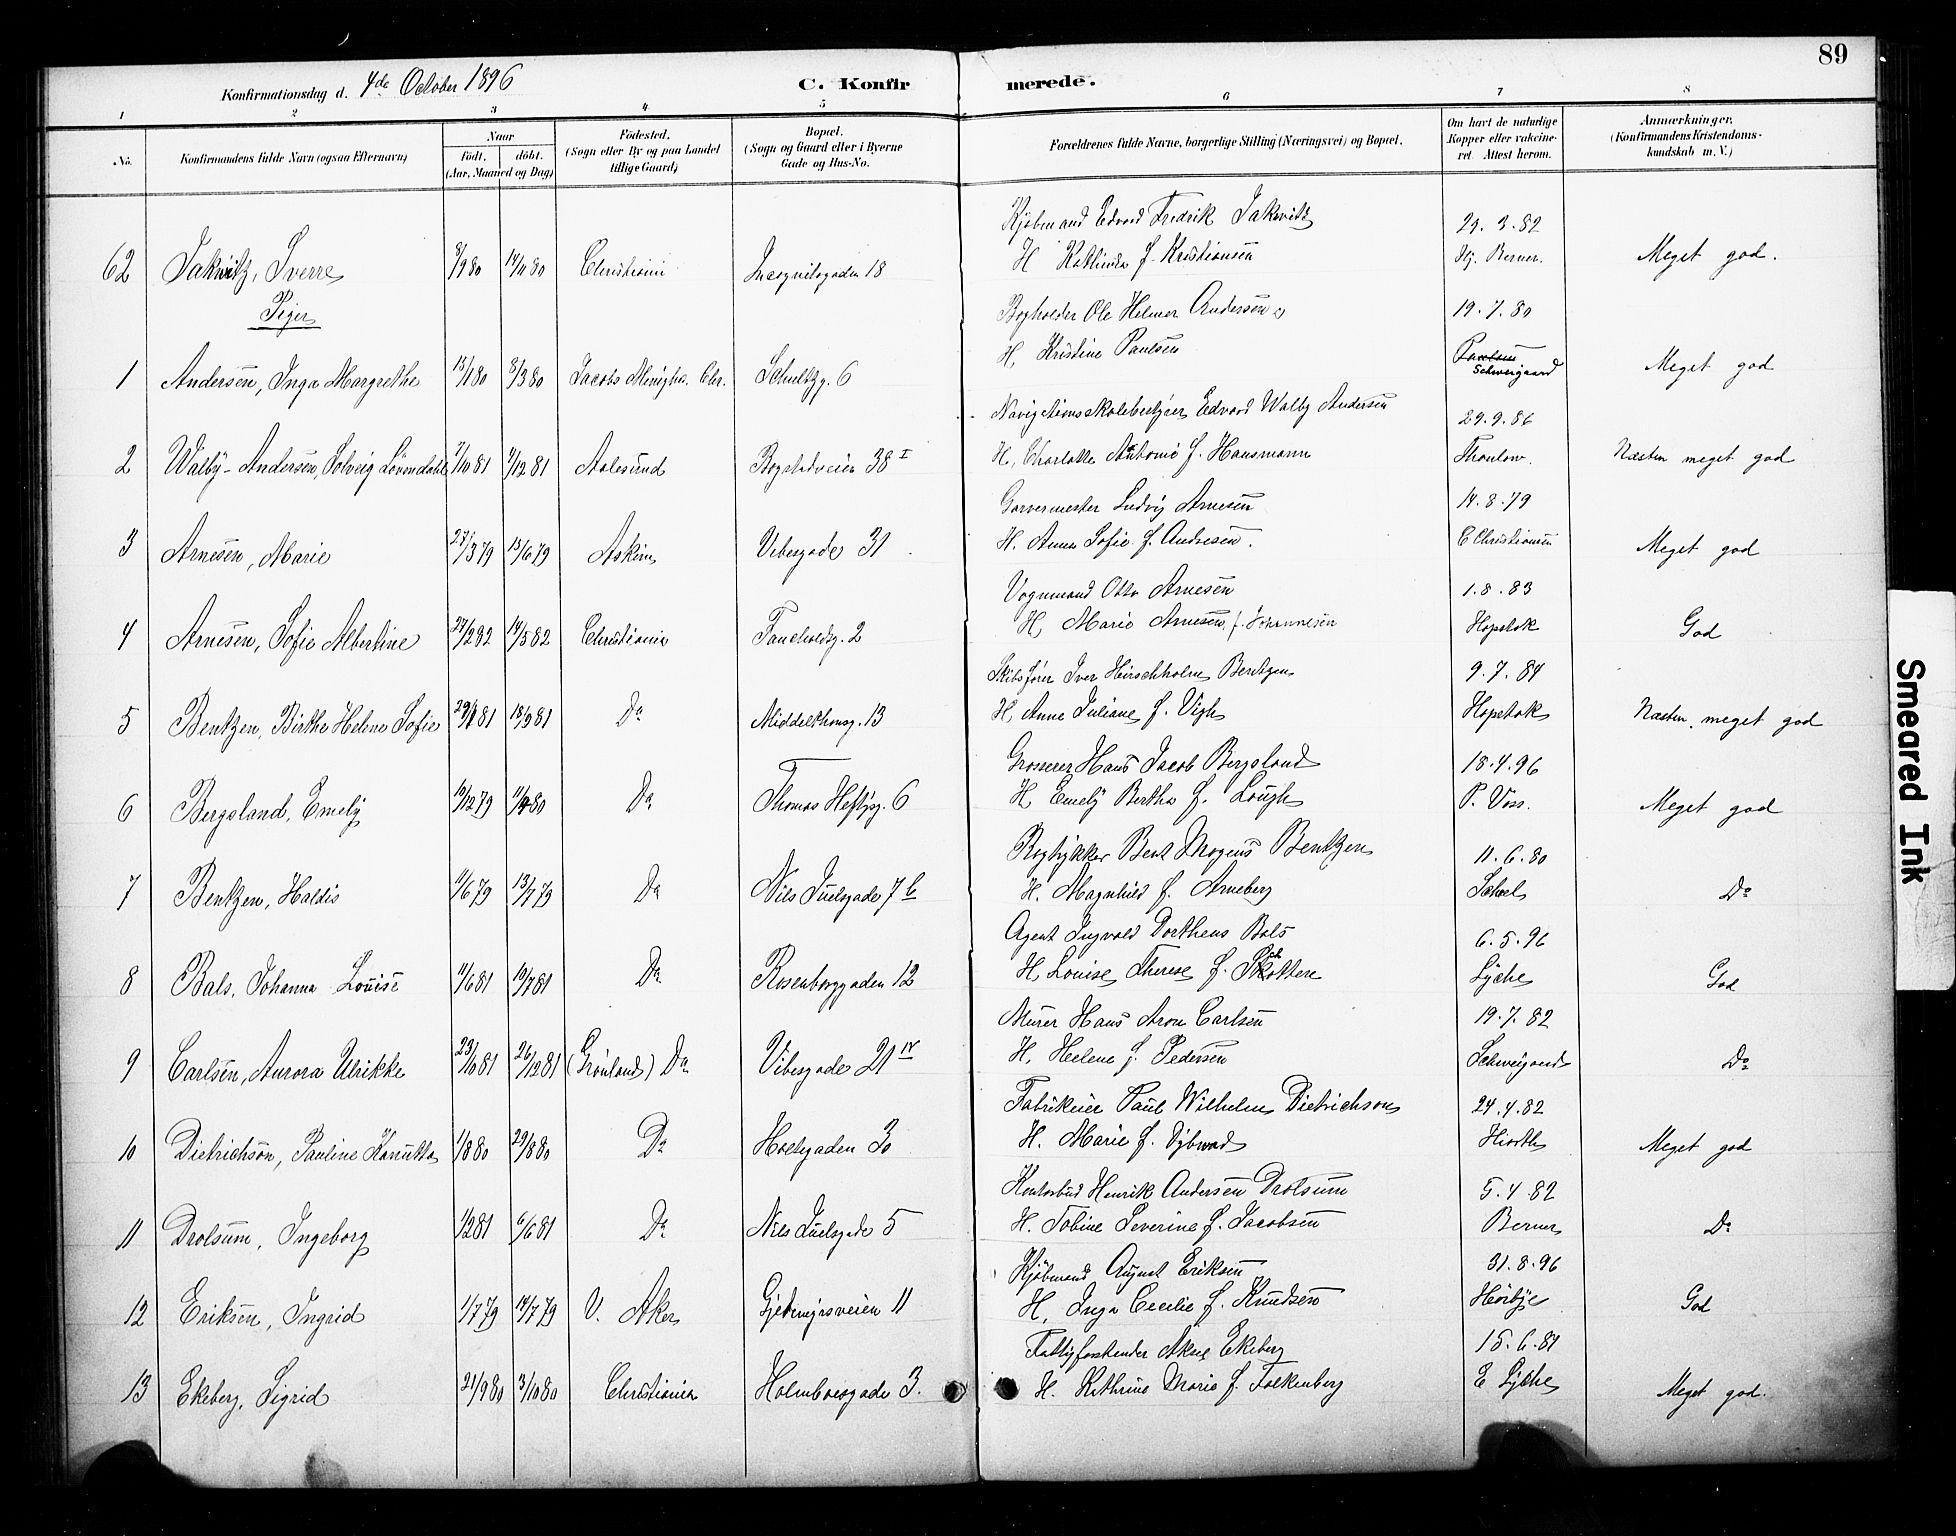 89
Konfirmationsdag d. 4de October 1896
C. Konfirmerede.
1 2 3 4 5 6 7 8
No.
Konfirmandens fulde Navn (ogsaa Efternavn)
Naar
født. døbt.
(Aar, Maaned og Dag)
Fødested.
(Sogn eller By og paa Landet
tillige Gaard)
Bopæl.
(Sogn og Gaard eller i Byerne
Gade og Hus-No.
Forældrenes fulde Navne, borgerlige Stilling (Næringsvei) og Bopæl.
Om havt de naturlige
Kopper eller vakcine-
ret. Attest herom.
Anmærkninger.
(Konfirmandens Kristendoms-
kundskab m. V.)
Kjøbmand Edvard Fredrik Jakwitz 29.3.82
62 Jakwitz, Sverre 8/9 80 14/11 80 Christiania 18 H Kathinka f. Kristiansen Hj. Berner. Meget god.
Piger
Bogholder Ole Helmer Andersen 19.7.80
1 Andersen, Inga Margrethe 13/1 80 8/3 80 Jacobs Menighed. Chr. Schultzg. 6 H, Kristine Paulsen Schweigaard Meget god
Navigationsskolebestyrer Edvard Walby Andersen 29.9.86
2 Walby-Andersen, Solveig Løvendahl 7/10 81 4/12 81 Aalesund Bogstadveien 38 I H, Charlotte Antonie f. Hansmann Thaulow. Næsten meget god
Garvermester Ludvig Arnesen 14.8.79
3 Arnesen, Marie 27/3 79 15/6 79 Askim Vibesgade 31 H. Anna Sofie f. Andresen. C Christiansen Meget god
Vognmand Otto Arnesen 1.8.83
4 Arnesen, Sofie Albertine 24/2 82 14/5 82 Christiania Fauchaldsg. 2 H, Marie Arnesen, f. Johannesen Hopstok God
Skibsfører Iver Hirschholm Bentzen 9.7.84
5 Bentzen, Birthe Helene Sofie 29/1 81 18/9 81 Do Middelthunsg. 13 H, Anne Juliane f. Vigh Hopstok Næsten meget god
Grosserer Hans Jacob Bergsland 18.4.96
6 Bergsland, Emely 10/12 79 Do Thomas Heftyesg. 6 H, Emely Bertha f. Lough P. Voss. Meget god
Bogtrykker Bent Mogens Bentzen 11.6.80
7 Bentzen, Haldis 11/6 79 13/7 79 Do Nils Juelsgade 7 b H. Magnhild f. Arneberg Scheel Do
Agent Ingvald Dortheus Bals 6.5.96
8 Bals, Johanna Louise 11/6 81 19/7 81 Do Rosenborggaden 12 H, Louise Therese f. Schotten Lyche God
Murer Hans Aron Carlsen 19.7.82
9 Carlsen, Aurora Ulrikke 23/10 81 26/12 81 (Grønland) Do Vibesgade 21 IV H. Helene f. Pedersen Schweigaard Do
Fabrikeier Paul Wilhelm Dietrichson 24.4.82
10 Dietrichson, Pauline Kanutta 1/8 80 29/8 80 Do Holtegaden 30 H. Marie f. Dybwad Hiorth Meget god
Kontorbud Henrik Andersen Drolsum 5.4 82
11 Drolsum, Ingeborg 1/2 81 6/6 81 Do Nils Juelsgade 5 H. Tobine Severine f. Jacobsen Berner Do
Kjøbmand August Eriksen 31.8.96
12 Eriksen, Ingrid 1/7 79 14/7 79 V. Aker Gjetemyrsveien 11 H, Inga Cecilie f. Knudsen Hørbye God
Fattigforstander Aksel Ekeberg 15.6.81
13 Ekeberg, Sigrid 21/9 80 3/10 80 Christiania Holmboesgade 3. H. Kathrine Marie f. Falkenberg E Lyche Meget god.
Smeared Ink